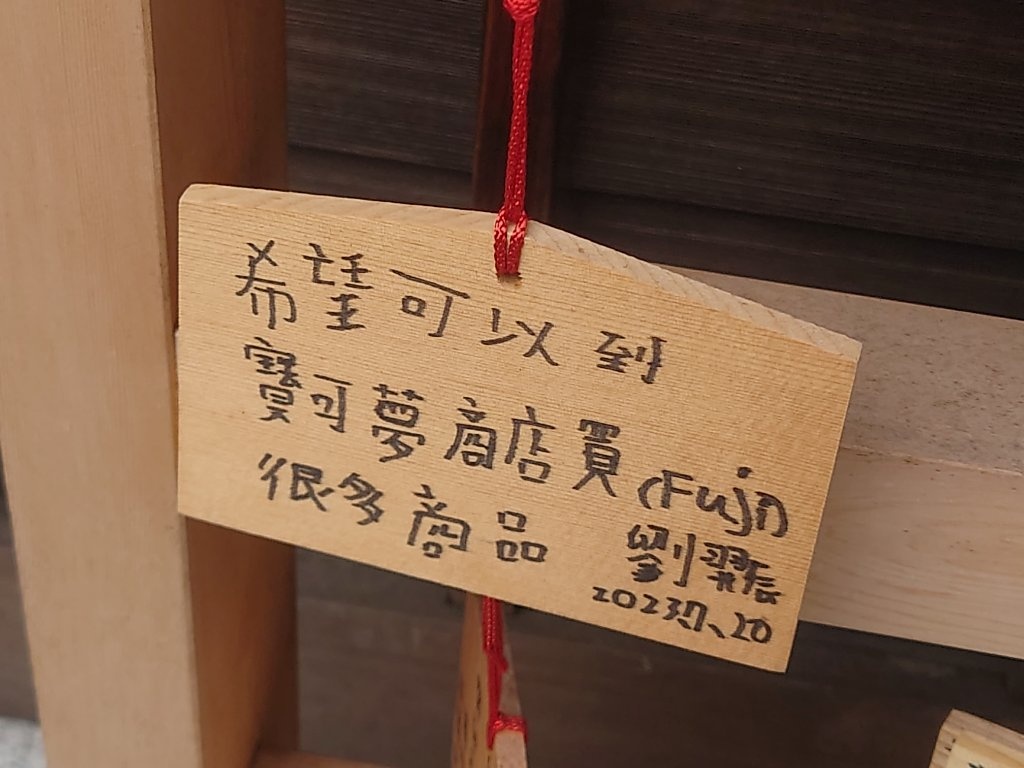 希望可以到
寶可夢商店買
很多商品
(Fuji)
劉
2023.7.20